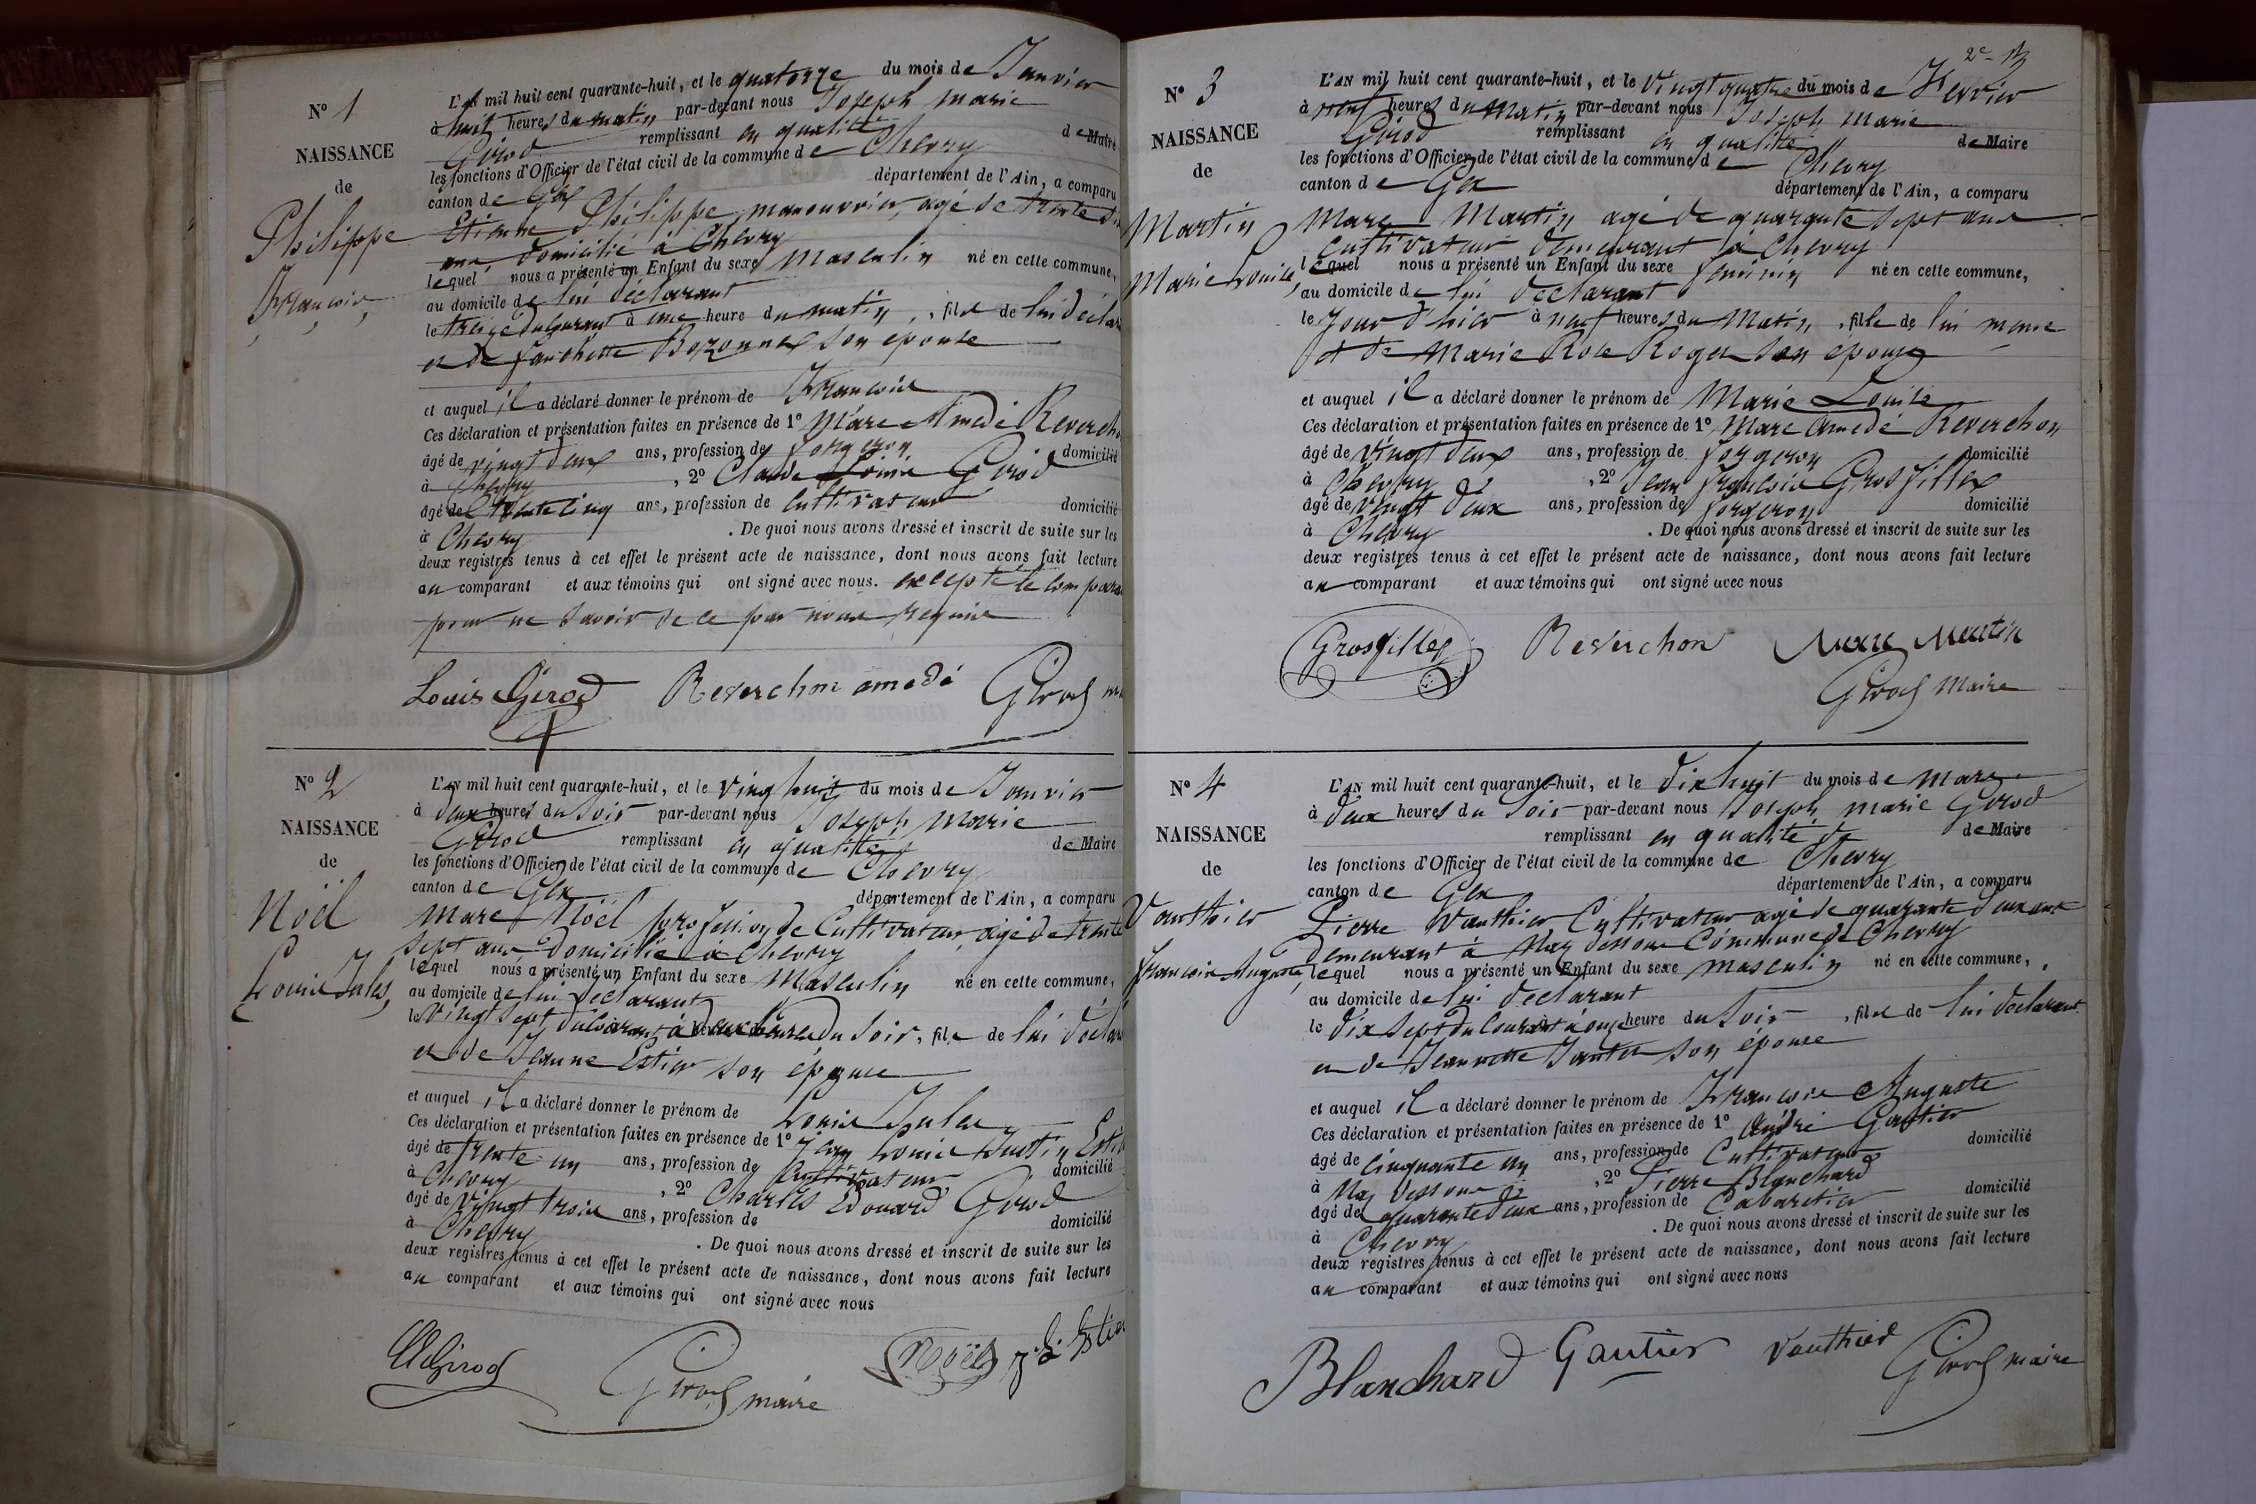 N° 1
NAISSANCE
de
Philippe
François
L'AN mil huit cent quarante-huit, et le quatorze du mois de Janvier
à huit heures du matin par-devant nous Joseph Marie
Girod remplissant en qualité de Maire
les fonctions d'Officier de l'état civil de la commune de Chevry
canton de Gex département de l'Ain, a comparu
Etienne Philippe, manouvrier, agé de trente
ans, domicilié à Chevry
lequel nous a présenté un Enfant du sexe masculin né en cette commune,
au domicile de lui déclarant
le treize du courant à une heure du matin, fils de lui déclar
et de Fanchette Bozonnet son epouse
et auquel il a déclaré donner le prénom de François
Ces déclaration et présentation faites en présence de 1° Marc Amedé Revercho
âgé de vingt deux ans, profession de forgeron domicilié
à Chevry, 2° Claude Louis Girod
âgé de trente cinq ans, profession de cultivateur domicilié
à Chevry. De quoi nous avons dressé et inscrit de suite sur les
deux registres tenus à cet effet le présent acte de naissance, dont nous avons fait lecture
au comparant et aux témoins qui ont signé avec nous. excepté le compara
pour ne savoir de ce par nous requis
Louis Girod Reverchon amedé Girod m
N° 2
NAISSANCE
de
Noël
Louis Jules
L'AN mil huit cent quarante-huit, et le vingt huit du mois de Janvier
à deux heures du soir par-devant nous Joseph Marie
Girod remplissant en qualité de Maire
les fonctions d'Officier de l'état civil de la commune de Chevry
canton de Gex département de l'Ain, a comparu
Marc Noël profession de Cultivateur, agé de trente
sept ans Domicilié à Chevry
lequel nous a présenté un Enfant du sexe Masculin né en cette commune,
au domicile de lui déclarant
le vingt sept du courant à deux heures du soir, fils de lui déclar
et de Jeanne Estier son épouse
et auquel il a déclaré donner le prénom de Louis Jules
Ces déclaration et présentation faites en présence de 1° Jean Louis Justin Esti
âgé de trente un ans, profession de Cultivateur domicilié
à Chevry, 2° Charles Edouard Girod
âgé de vingt trois ans, profession de domicilié
à Chevry. De quoi nous avons dressé et inscrit de suite sur les
deux registres tenus à cet effet le présent acte de naissance, dont nous avons fait lecture
au comparant et aux témoins qui ont signé avec nous
Girod Girod maire Noël Estier
2e
N° 3
NAISSANCE
de
Martin
Marie Louise
L'AN mil huit cent quarante-huit, et le vingt quatre du mois de Fevrier
à neuf heures du Matin par-devant nous Joseph Marie
Girod remplissant en qualité de Maire
les fonctions d'Officier de l'état civil de la commune de Chevry
canton de Gex département de l'Ain, a comparu
Marc Martin agé de quarante sept ans
Cultivateur demeurant à Chevry
lequel nous a présenté un Enfant du sexe féminin né en cette commune,
au domicile de lui déclarant
le jour d'hier à neuf heures du Matin, fille de lui meme
et de Marie Rose Roger son epouse
et auquel il a déclaré donner le prénom de Marie Louise
Ces déclaration et présentation faites en présence de 1° Marc Amedé Reverchon
âgé de vingt deux ans, profession de forgeron domicilié
à Chevry, 2° Jean François Grosfillex
âgé de vingt deux ans, profession de forgeron domicilié
à Chevry. De quoi nous avons dressé et inscrit de suite sur les
deux registres tenus à cet effet le présent acte de naissance, dont nous avons fait lecture
au comparant et aux témoins qui ont signé avec nous
Grosfillex Reverchon Marc Martin
Girod Maire
N° 4
NAISSANCE
de
Vauthier
François Auguste
L'AN mil huit cent quarante-huit, et le dix huit du mois de mars
à deux heures du soir par-devant nous Joseph Marie Girod
remplissant en qualité de de Maire
les fonctions d'Officier de l'état civil de la commune de Chevry
canton de Gex département de l'Ain, a comparu
Pierre Vauthier Cultivateur agé de quarante deux ans
demeurant à Naz dessous Commune de Chevry
lequel nous a présenté un Enfant du sexe masculin né en cette commune,
au domicile de lui déclarant
le dix sept du courant à onze heure du soir, fils de lui déclarant
et de Jeannette son épouse
et auquel il a déclaré donner le prénom de François Auguste
Ces déclaration et présentation faites en présence de 1° André Gautier
âgé de cinquante un ans, profession de Cultivateur domicilié
à Naz dessous, 2° Pierre Blanchard
âgé de quarante deux ans, profession de Cabaretier domicilié
à Chevry. De quoi nous avons dressé et inscrit de suite sur les
deux registres tenus à cet effet le présent acte de naissance, dont nous avons fait lecture
au comparant et aux témoins qui ont signé avec nous
Blanchard Gautier Vauthier Girod maire